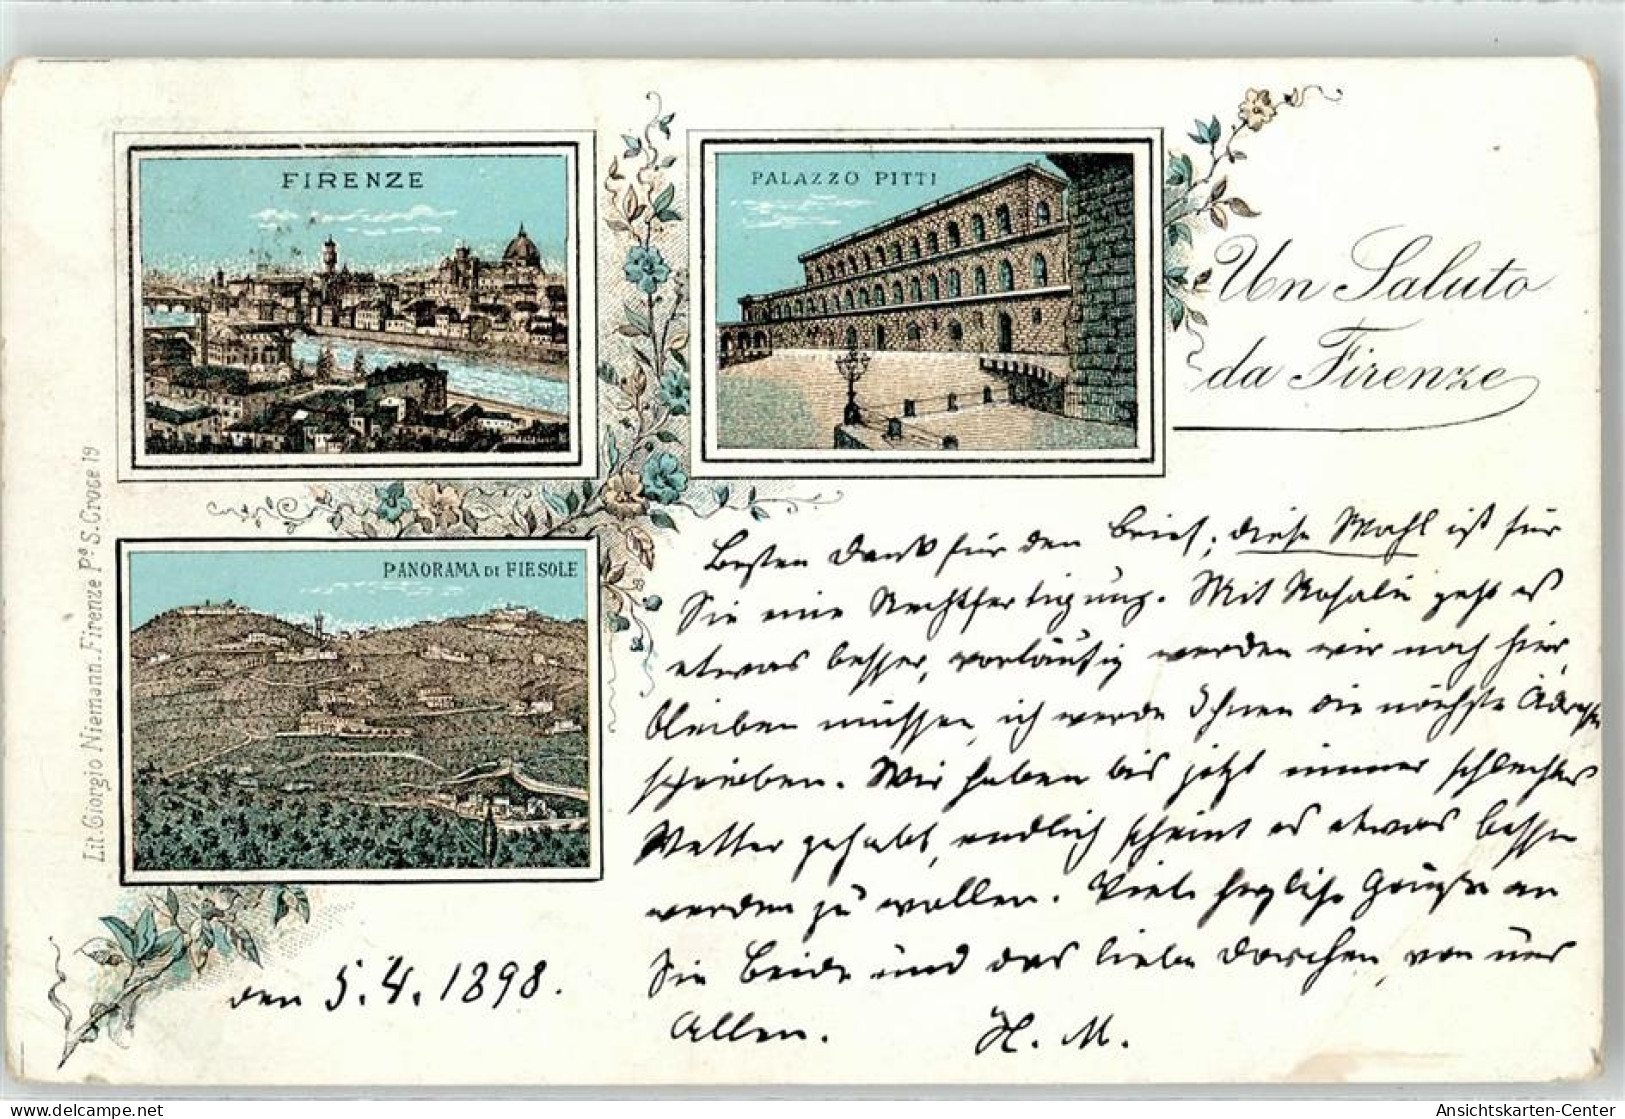 FIRENZE
PALAZZO PITTI
Un Saluto
da Firenze
PANORAMA DI FIESOLE
Lit. Giorgio Niemann. Firenze Pza S. Croce 19
Besten Dank für den Brief, diese Wahl ist für
Sie eine Rechtfertigung. Mit Rosalie geht es
etwas besser, vorläufig werden wir noch hier
bleiben müssen, ich werde Ihnen die nächste Adresse
schreiben. Wir haben bis jetzt immer schlechtes
Wetter gehabt, endlich scheint es etwas besser
werden zu wollen. Viele herzliche Grüße an
Sie Beide und das liebe Dorchen, von uns
Allen. H. M.
den 5.4.1898.
www.delcampe.net
onkelfranz
Ansichtskarten-Center